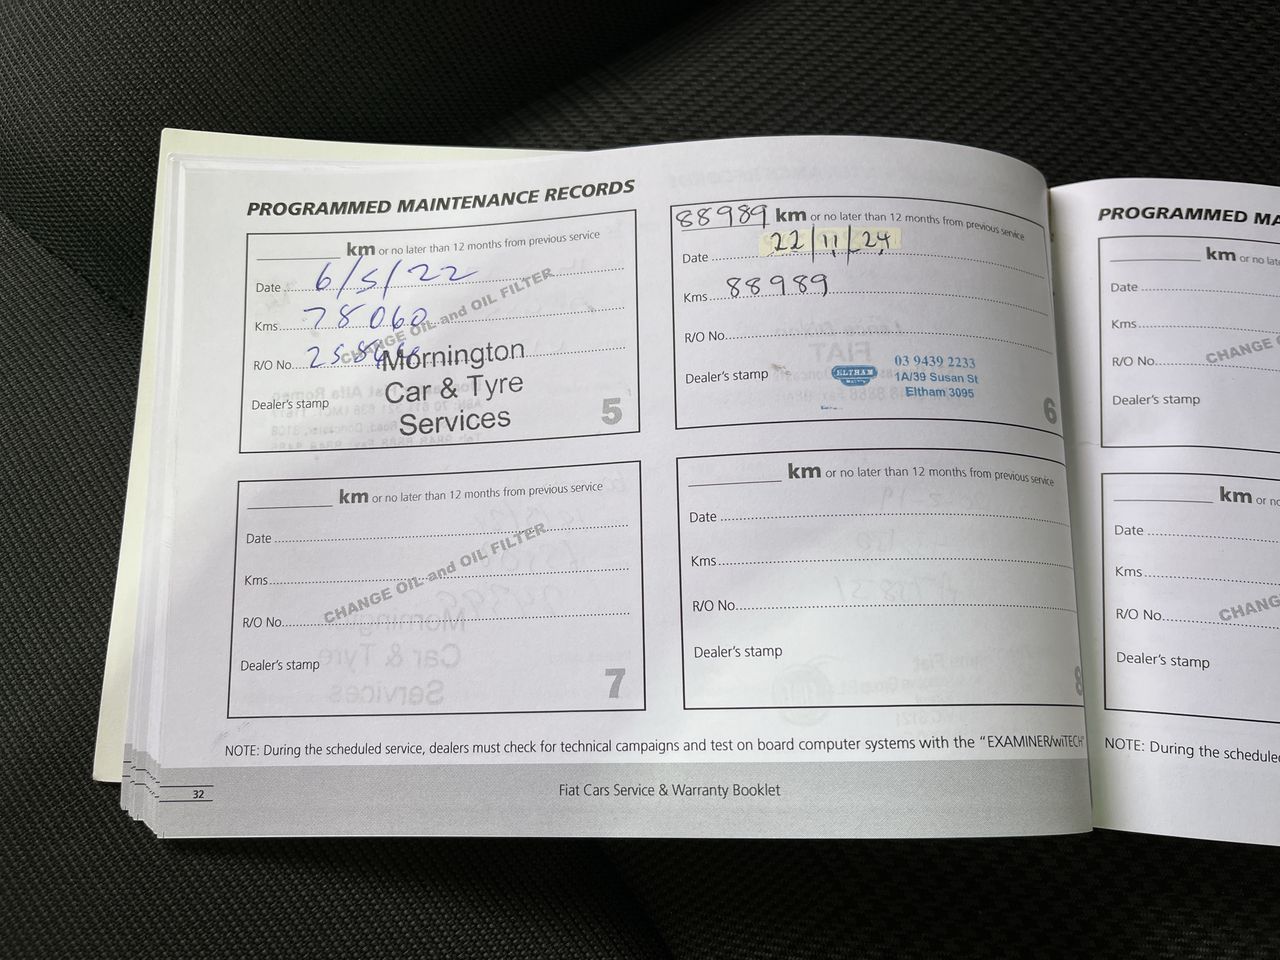 PROGRAMMED MAINTENANCE RECORDS
km or no later than 12 months from previous service
Date 6/5/22
Kms 78060
R/O No.
CHANGE OIL and OIL FILTER
Dealer's stamp
Mornington
Car & Tyre
Services
5
88989 km or no later than 12 months from previous service
Date 22/11/24
Kms 88989
R/O No.
Dealer's stamp
ELTHAM
03 9439 2233
1A/39 Susan St
Eltham 3095
6
km or no later than 12 months from previous service
Date
Kms
R/O No.
CHANGE OIL and OIL FILTER
Dealer's stamp
7
km or no later than 12 months from previous service
Date
Kms
R/O No.
Dealer's stamp
8
NOTE: During the scheduled service, dealers must check for technical campaigns and test on board computer systems with the "EXAMINER/wiTECH
32
Fiat Cars Service & Warranty Booklet
PROGRAMMED MA
km or no late
Date
Kms
R/O No.
CHANGE O
Dealer's stamp
km or no
Date
Kms
R/O No.
CHANG
Dealer's stamp
NOTE: During the schedule